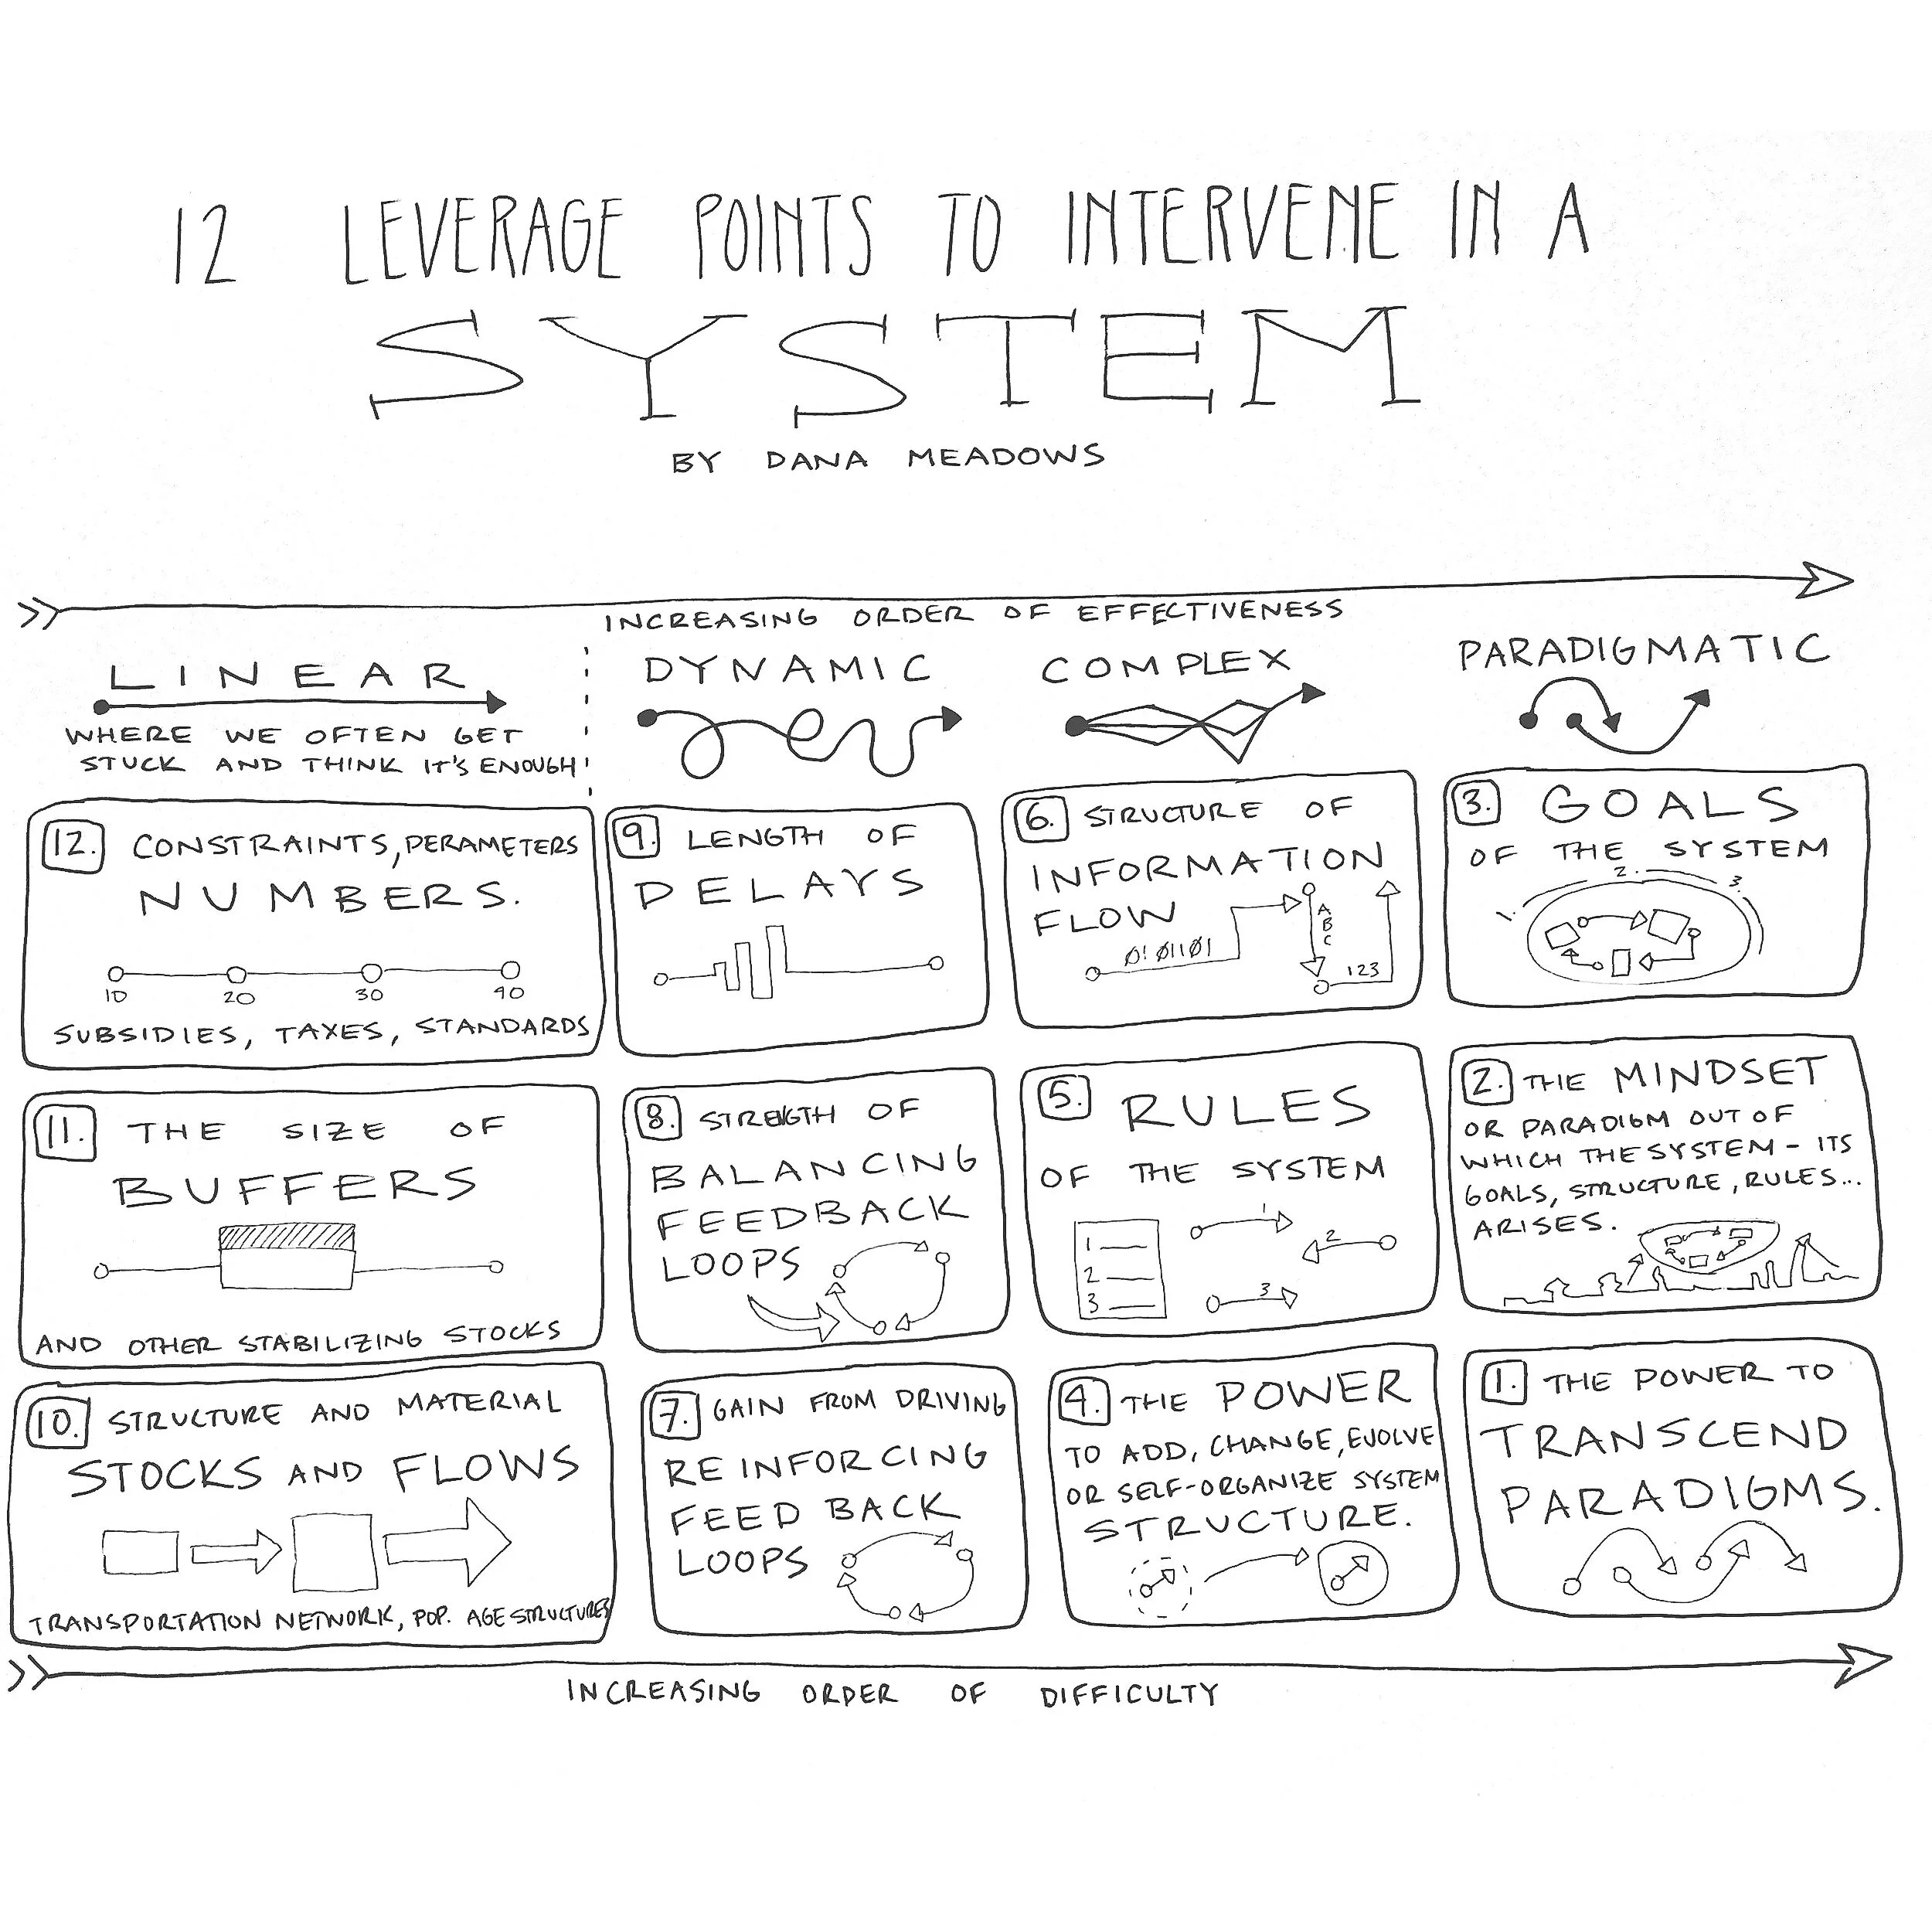 12 LEVERAGE POINTS TO INTERVENE IN A
SYSTEM
BY DANA MEADOWS
INCREASING ORDER OF EFFECTIVENESS
LINEAR
WHERE WE OFTEN GET
STUCK AND THINK IT'S ENOUGH!
12. CONSTRAINTS, PERAMETERS
NUMBERS.
10 20 30 40
SUBSIDIES, TAXES, STANDARDS
11. THE SIZE OF
BUFFERS
AND OTHER STABILIZING STOCKS
10. STRUCTURE AND MATERIAL
STOCKS AND FLOWS
TRANSPORTATION NETWORK, POP. AGE STRUCTURES
DYNAMIC
9. LENGTH OF
DELAYS
8. STRENGTH OF
BALANCING
FEEDBACK
LOOPS
7. GAIN FROM DRIVING
REINFORCING
FEED BACK
LOOPS
COMPLEX
6. STRUCTURE OF
INFORMATION
FLOW
0101101
A
B
C
123
5. RULES
OF THE SYSTEM
1
2
3
1
2
3
4. THE POWER
TO ADD, CHANGE, EVOLVE
OR SELF-ORGANIZE SYSTEM
STRUCTURE.
PARADIGMATIC
3. GOALS
OF THE SYSTEM
1. 2. 3.
2. THE MINDSET
OR PARADIGM OUT OF
WHICH THE SYSTEM - ITS
GOALS, STRUCTURE, RULES...
ARISES.
1. THE POWER TO
TRANSCEND
PARADIGMS.
INCREASING ORDER OF DIFFICULTY